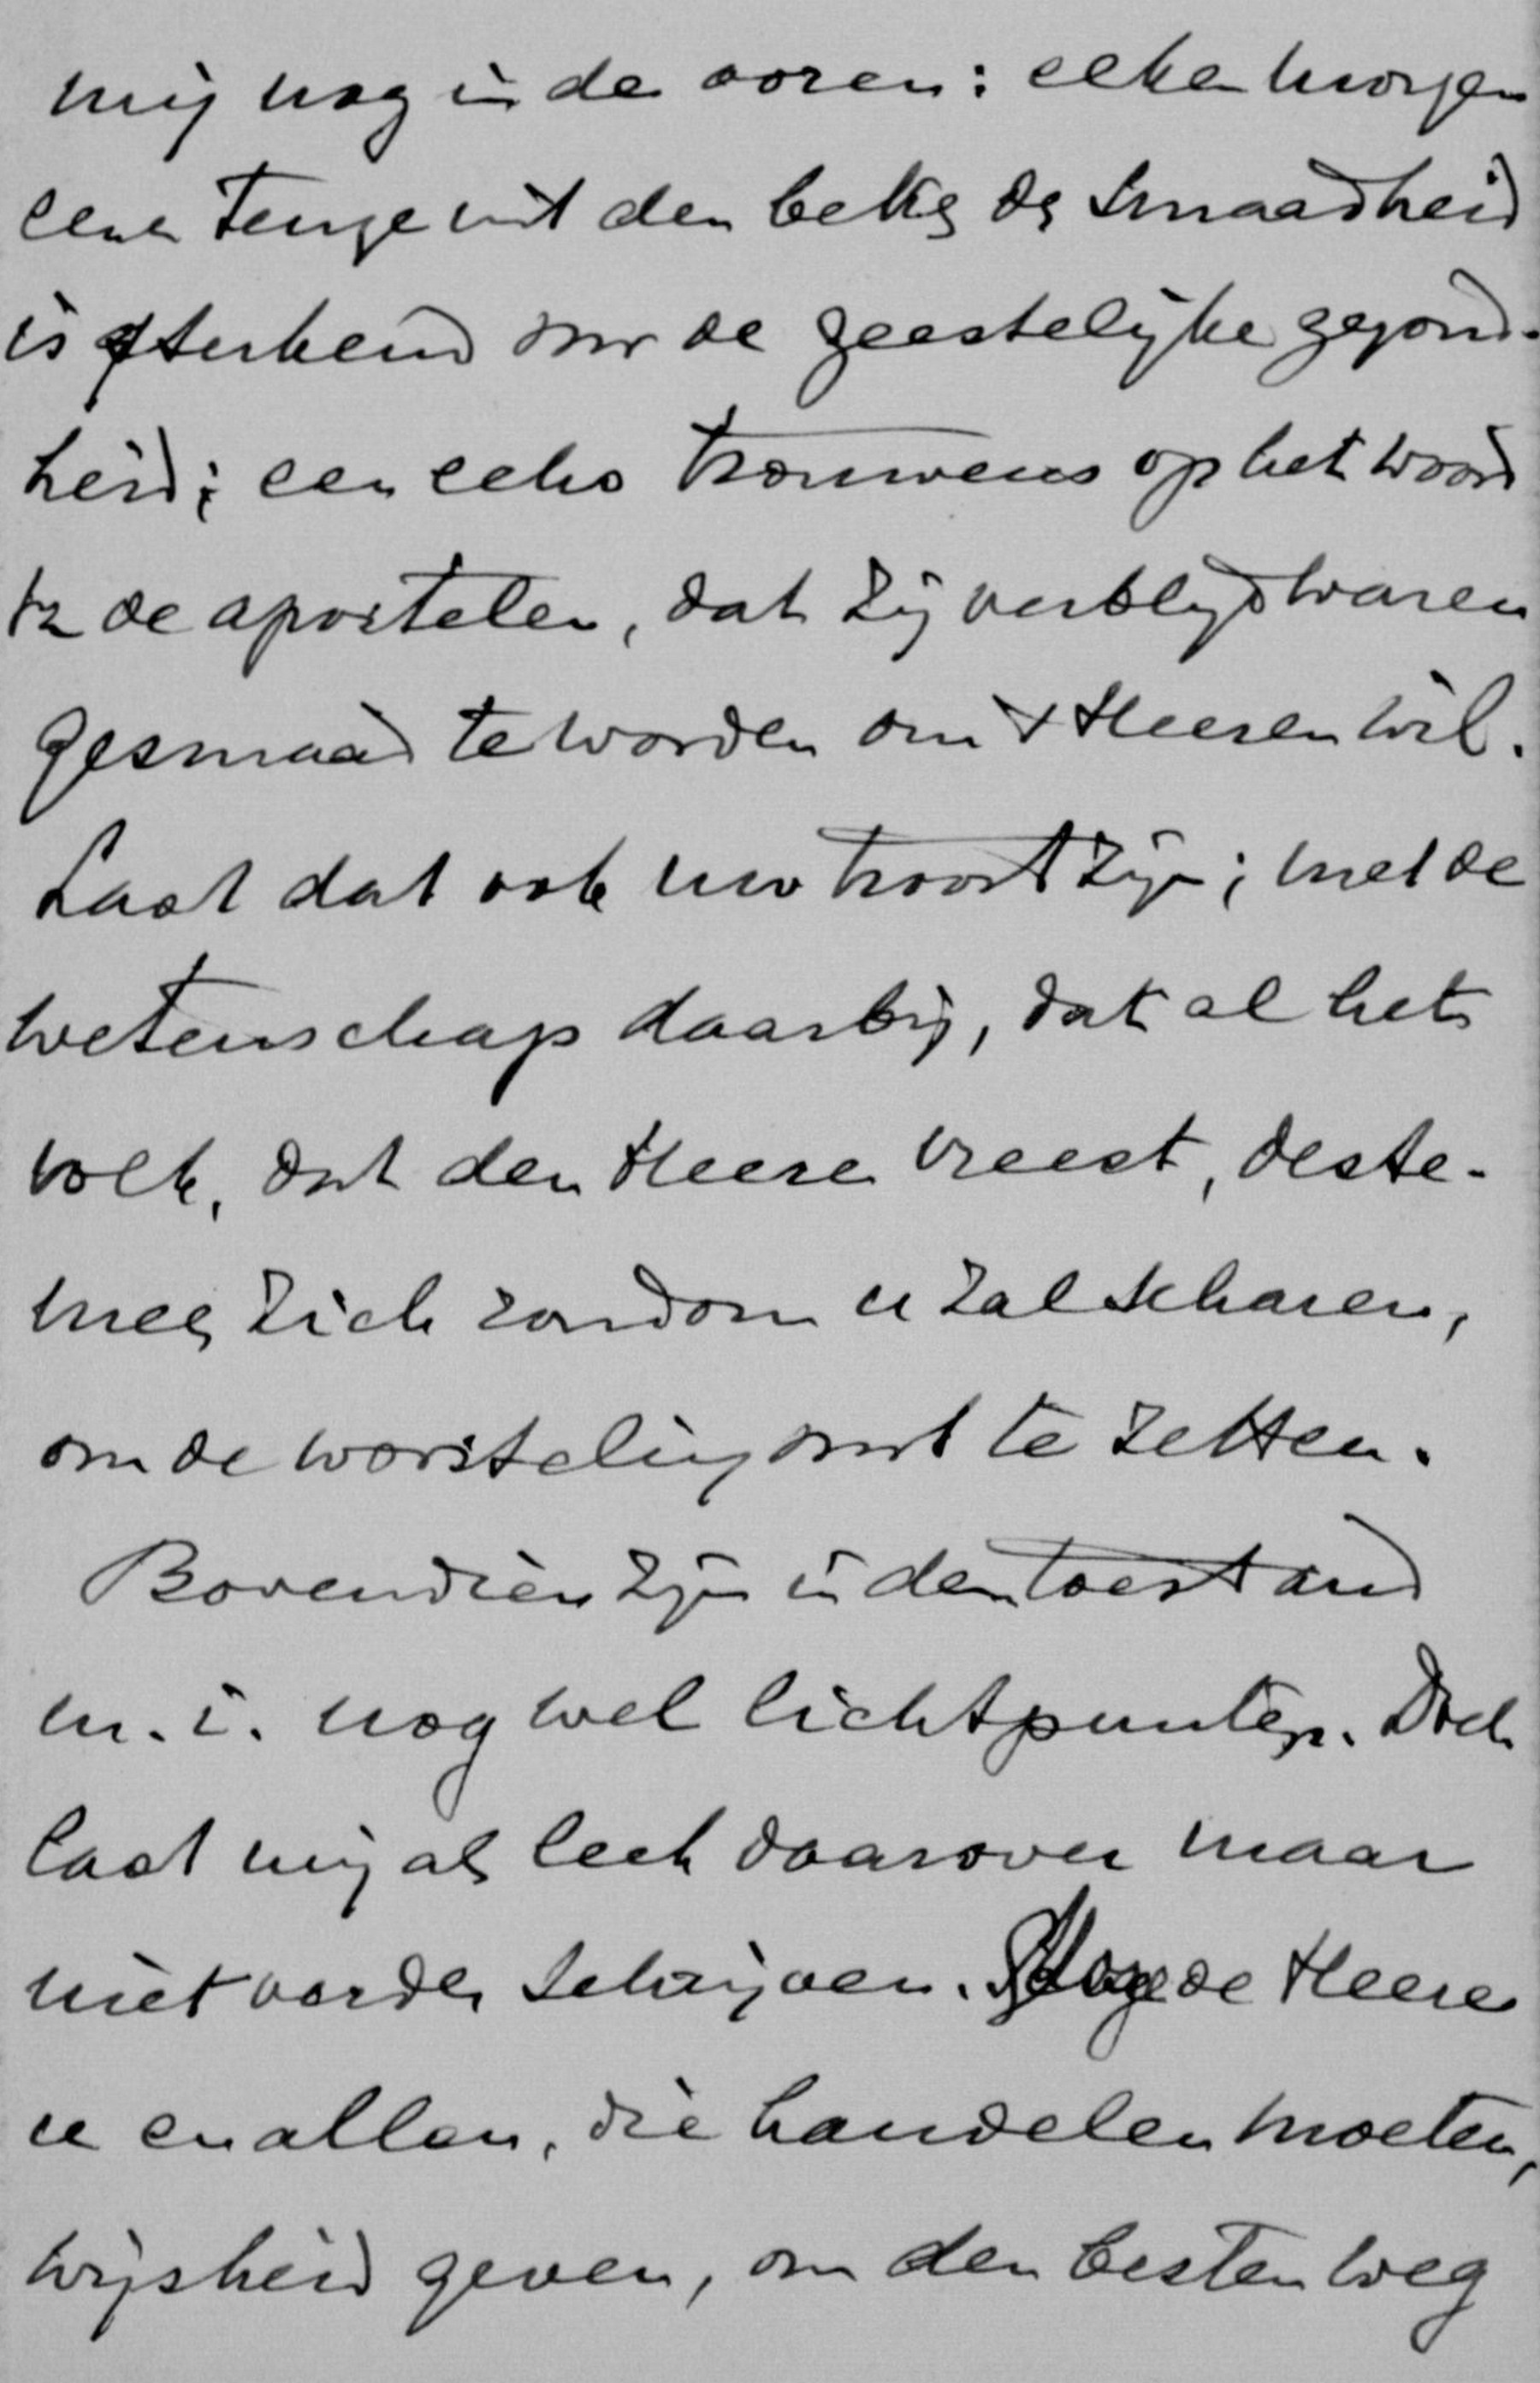 mij nog in de ooren: elken morgen
eene teuge uit den beker der smaadheid
is sterkend voor de geestelijke gezond-
heid; een echo trouwens op het woord
v/d de apostelen, dat zij verblijd waren
gesmaad te worden om 's Heeren wil.
Laat dat ook uw troost zijn; met de
wetenschap daarbij, dat al het
volk, dat den Heere vreest, deste-
meer zich rondom u zal scharen,
om de worsteling voort te zetten.
Bovendien zijn in den toestand
m. i. nog wel lichtpunten. Doch
laat mij als leek daarover maar
niet verder schrijven. Moge de Heere
u en allen, die handelen moeten,
wijsheid geven, om den besten weg